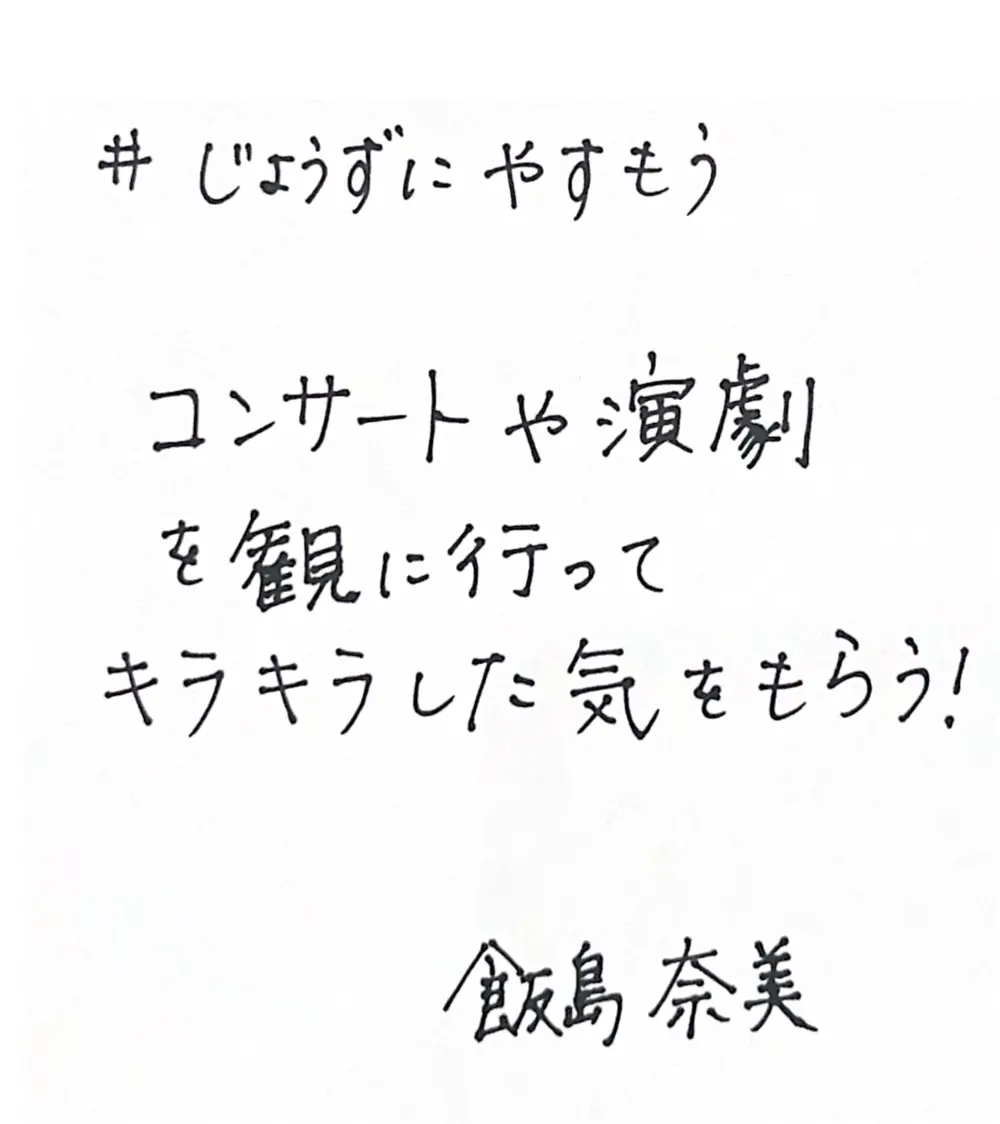 # じょうずに やすもう
コンサートや演劇
を観に行って
キラキラした気をもらう!
飯島 奈美